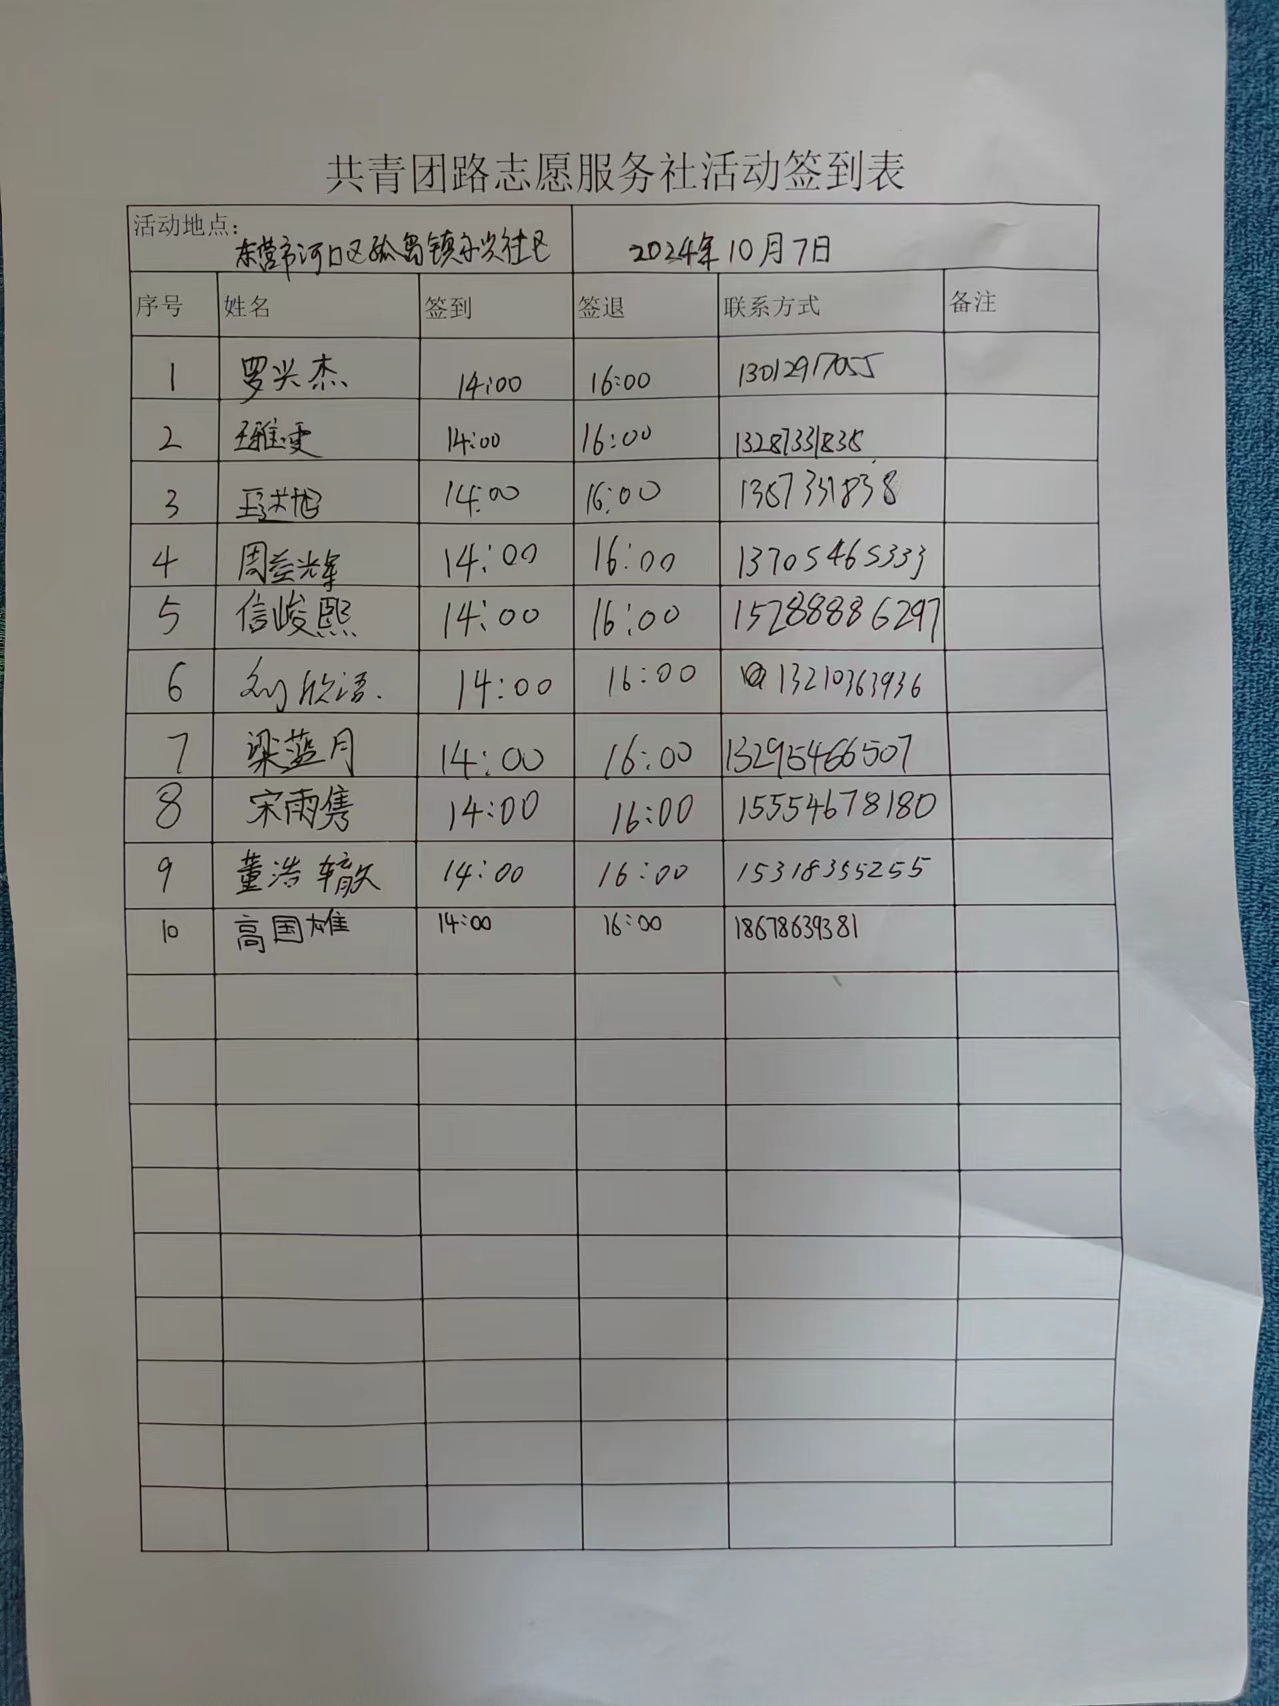 共青团路志愿服务社活动签到表
活动地点:
东营市河口区孤岛镇永兴社区 2024年10月7日
序号 姓名 签到 签退 联系方式 备注
1 罗兴杰 14:00 16:00 13012917055
2 14:00 16:00 13287331838
3 14:00 16:00 1387331838
4 周益光 14:00 16:00 13705465333
5 信峻熙 14:00 16:00 15288886297
6 刘欣语. 14:00 16:00 13210363936
7 梁蓝月 14:00 16:00 13295466507
8 宋雨隽 14:00 16:00 15554678180
9 董浩 14:00 16:00 15318355255
10 高国雄 14:00 16:00 18678639381